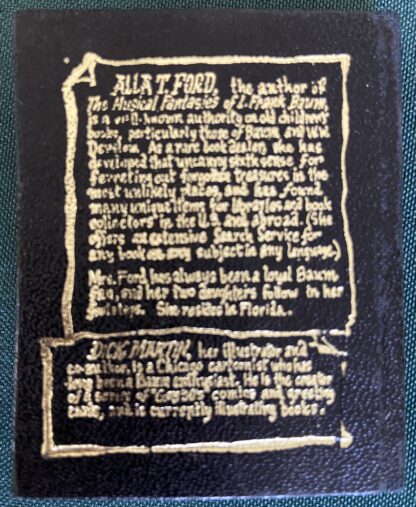 ALLA T. FORD, the author of
The Musical Fantasies of L. Frank Baum,
is a well-known authority on old children's
books, particularly those of Baum, and W.W.
Denslow. As a rare book dealer, she has
developed that uncanny sixth sense for
ferreting out forgotten treasures in the
most unlikely places, and has found
many unique items for libraries and book
collectors in the U.S. and abroad. (She
offers an extensive Search Service for
any book on any subject in any language.)
Mrs. Ford has always been a loyal Baum
fan, and her two daughters follow in her
footsteps. She resides in Florida.
DICK MARTIN, her illustrator and
co-author, is a Chicago cartoonist who has
long been a Baum enthusiast. He is the creator
of a series of comics and greeting
cards, and is currently illustrating books.